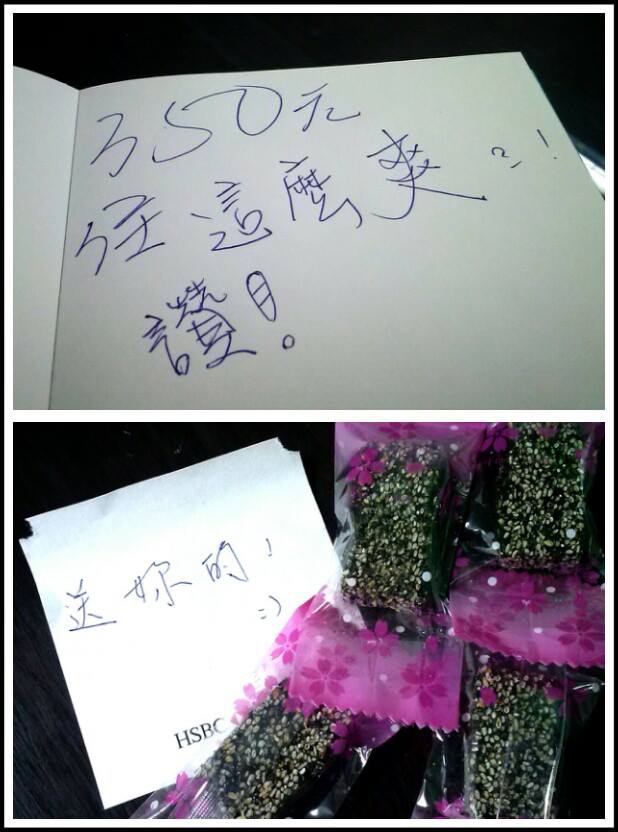 350元
住這麼爽?!
讚!
送妳的!
:)
HSBC